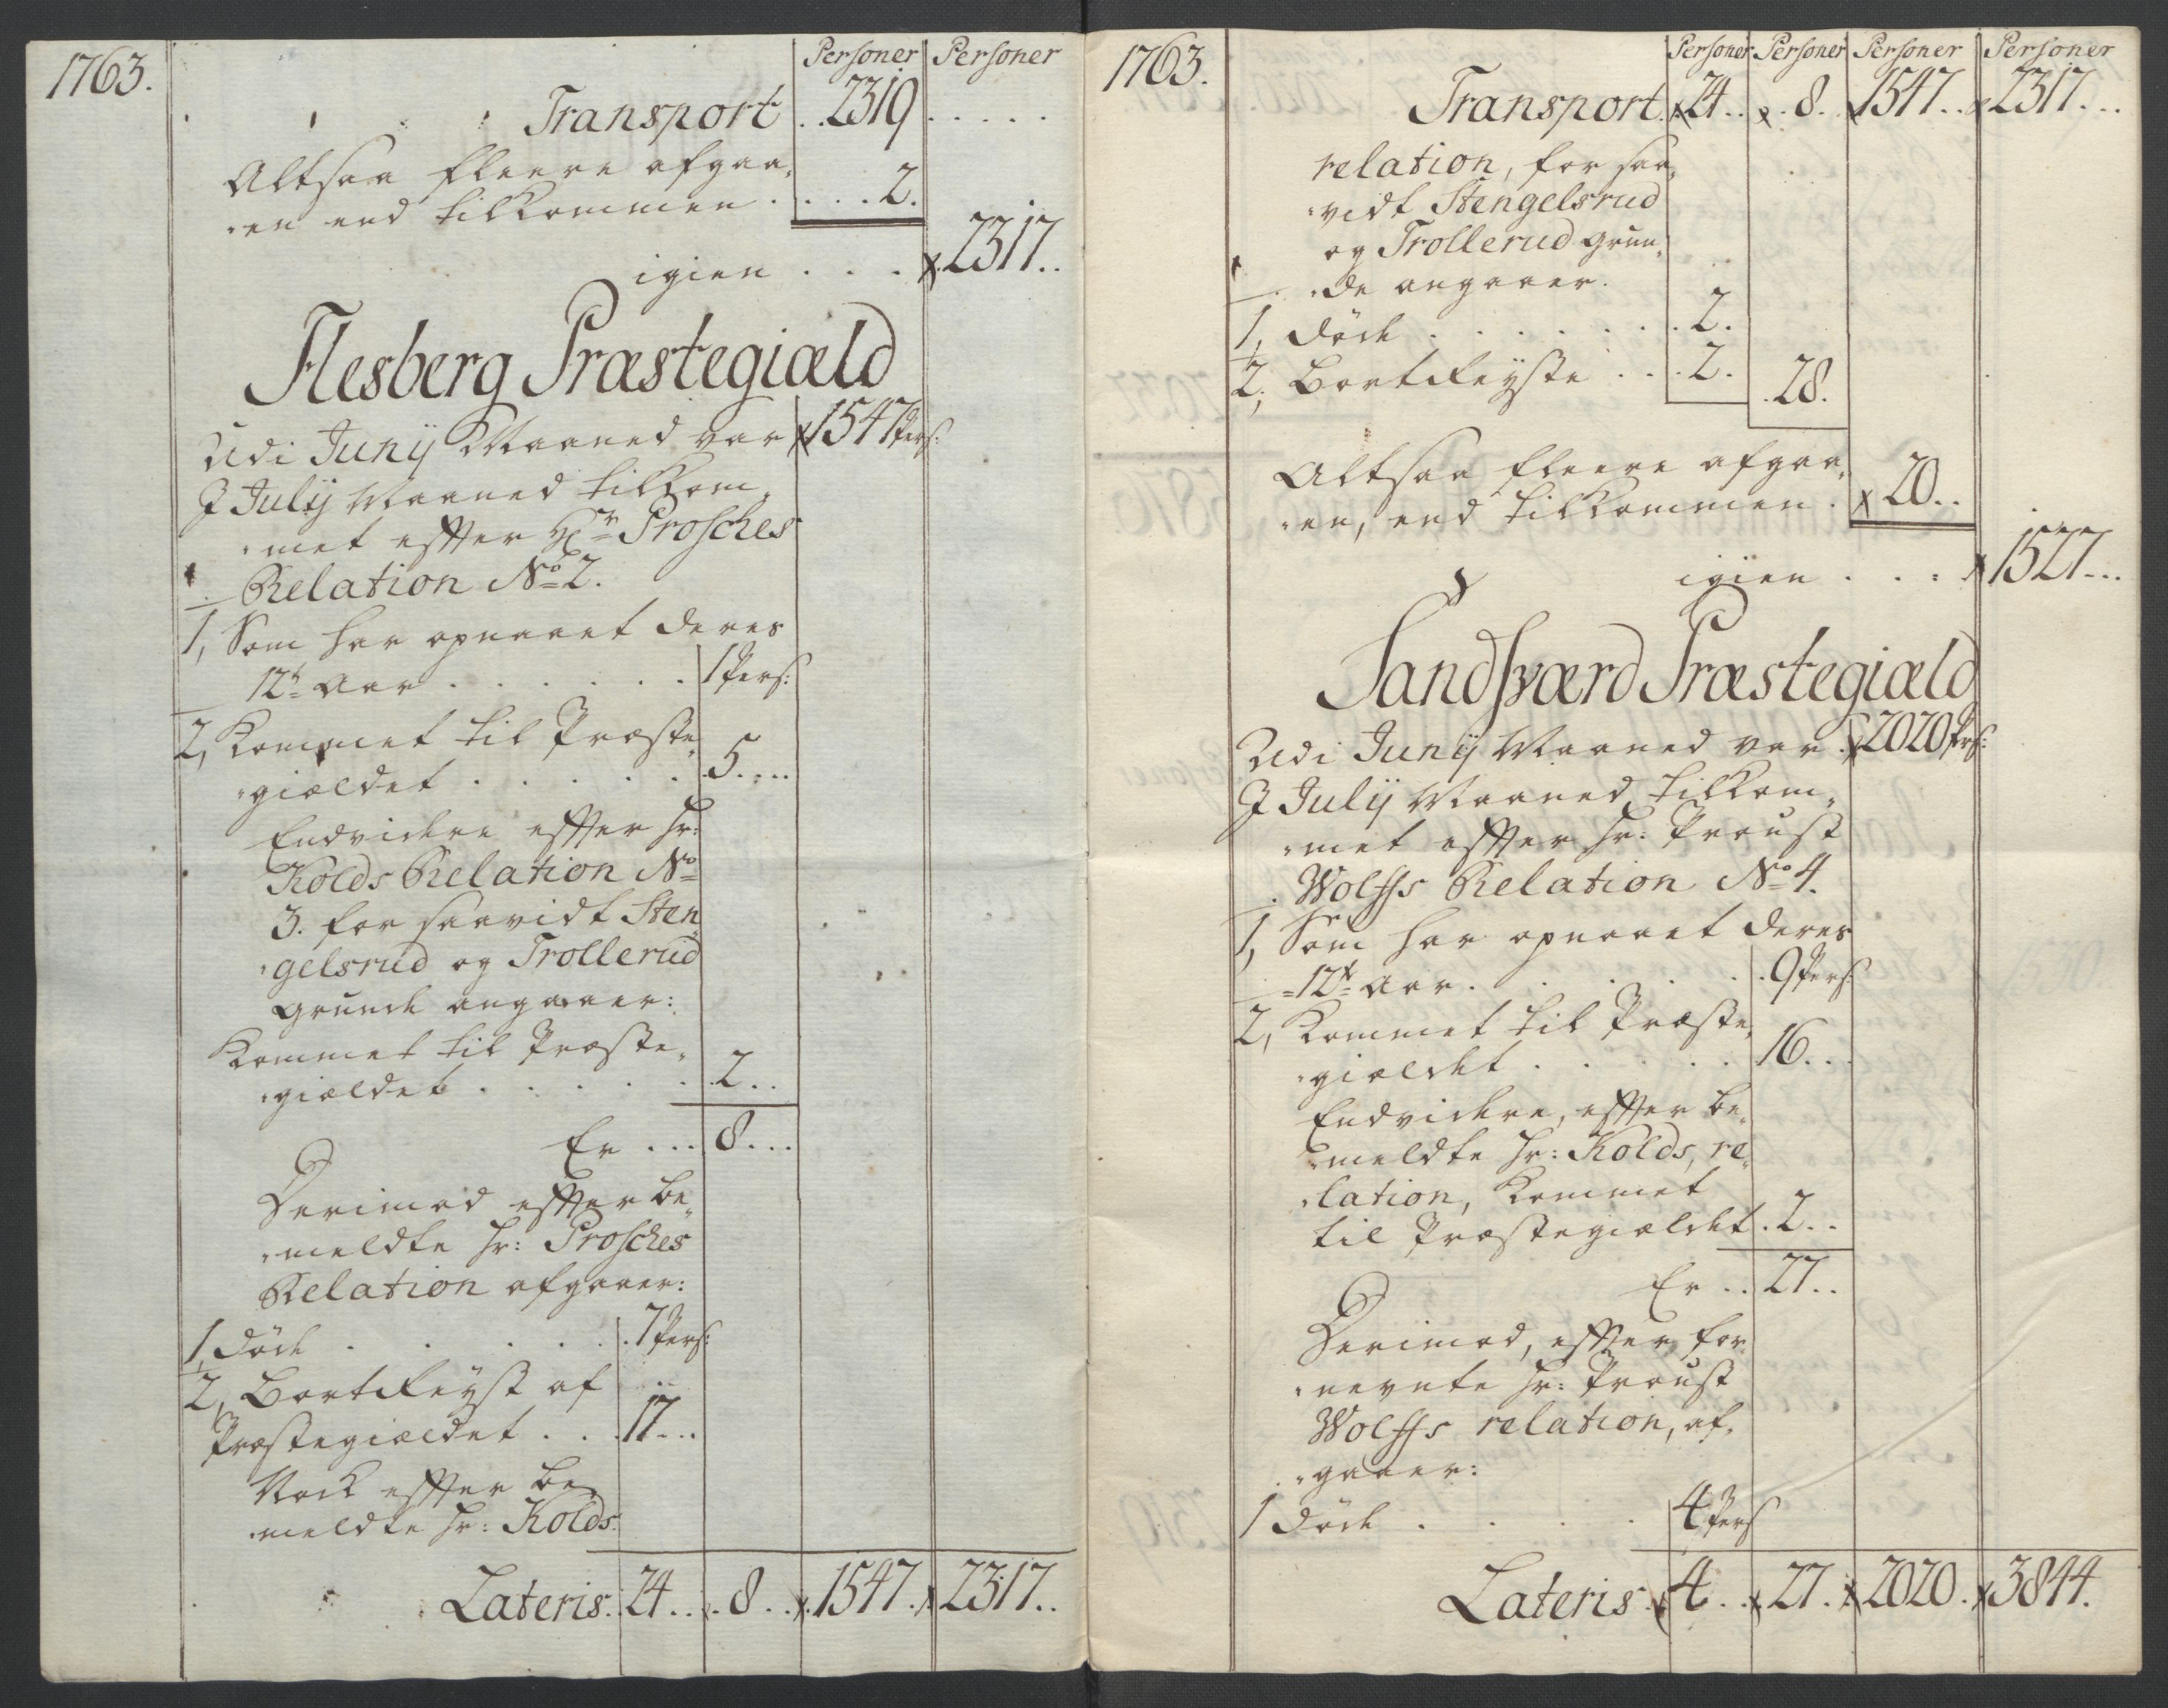 1763.
Personer Personer
Transport . . 2319 . . . . .
Altsaa fleere afgaa„
„en end tilkommen . . . . 2.
igien . . . x 2317. .
Flesberg Præstegiæld
Udi Junij Maaned var x 1547 Pers:
I Julij Maaned tilkom„
„met efter Hr Prosches
Relation No 2.
1, Som har opnaaet deres
12te Aar . . . . . . 1 Pers:
2, Kommet til Præste„
„giældet . . . . . 5. . . .
Endvidere efter Hr:
Kolds Relation No
3. for saavidt Sten„
„gelsrud og Trollerud
Grunde angaaer:
Kommet til Præste„
„giældet . . . . . 2. .
Er . . . 8. . .
Derimod efter be„
„meldte Hr: Prosches
Relation afgaaer:
1, Døde . . . . . 7 Pers:
2, Bortreyst af
Præstegiældet . . . 17. . .
Nock efter be„
„meldte Hr: Kolds
Lateris. 24. . . 8. . x 1547. x 2317. .
1763.
Personer Personer Personer Personer
Transport. x 24. . x . 8. . x 1547. . x 2317. . .
relation, for saa„
„vidt Stengelsrud
og Trollerud Grun„
„de angaaer.
1, Døde . . . . . . 2.
2, Bortreyste . . . 2. 28.
Altsaa fleere afgaa„
„en, end tilkommen . x 20. .
igien . . . x 1527. . .
Sandsværd Præstegiæld
Udi Junij Maaned var . x 2020 Pers:
I Julij Maaned tilkom„
„met efter Hr: Proust
Wolffs Relation No 4.
1, Som har opnaaet deres
12te Aar . . . . . 9 Pers:
2, Kommet til Præste„
„giældet . . . . . 16. . .
Endvidere, efter be„
„meldte Hr: Kolds, re„
„lation, Kommet
til Præstegiældet . 2. .
Er . . 27. .
Derimod, efter for„
„nevnte Hr: Proust
Wolffs relation, af„
„gaaer:
1 Døde . . . . 4 Pers
Lateris. x 4. . x 27. x 2020. x 3844.